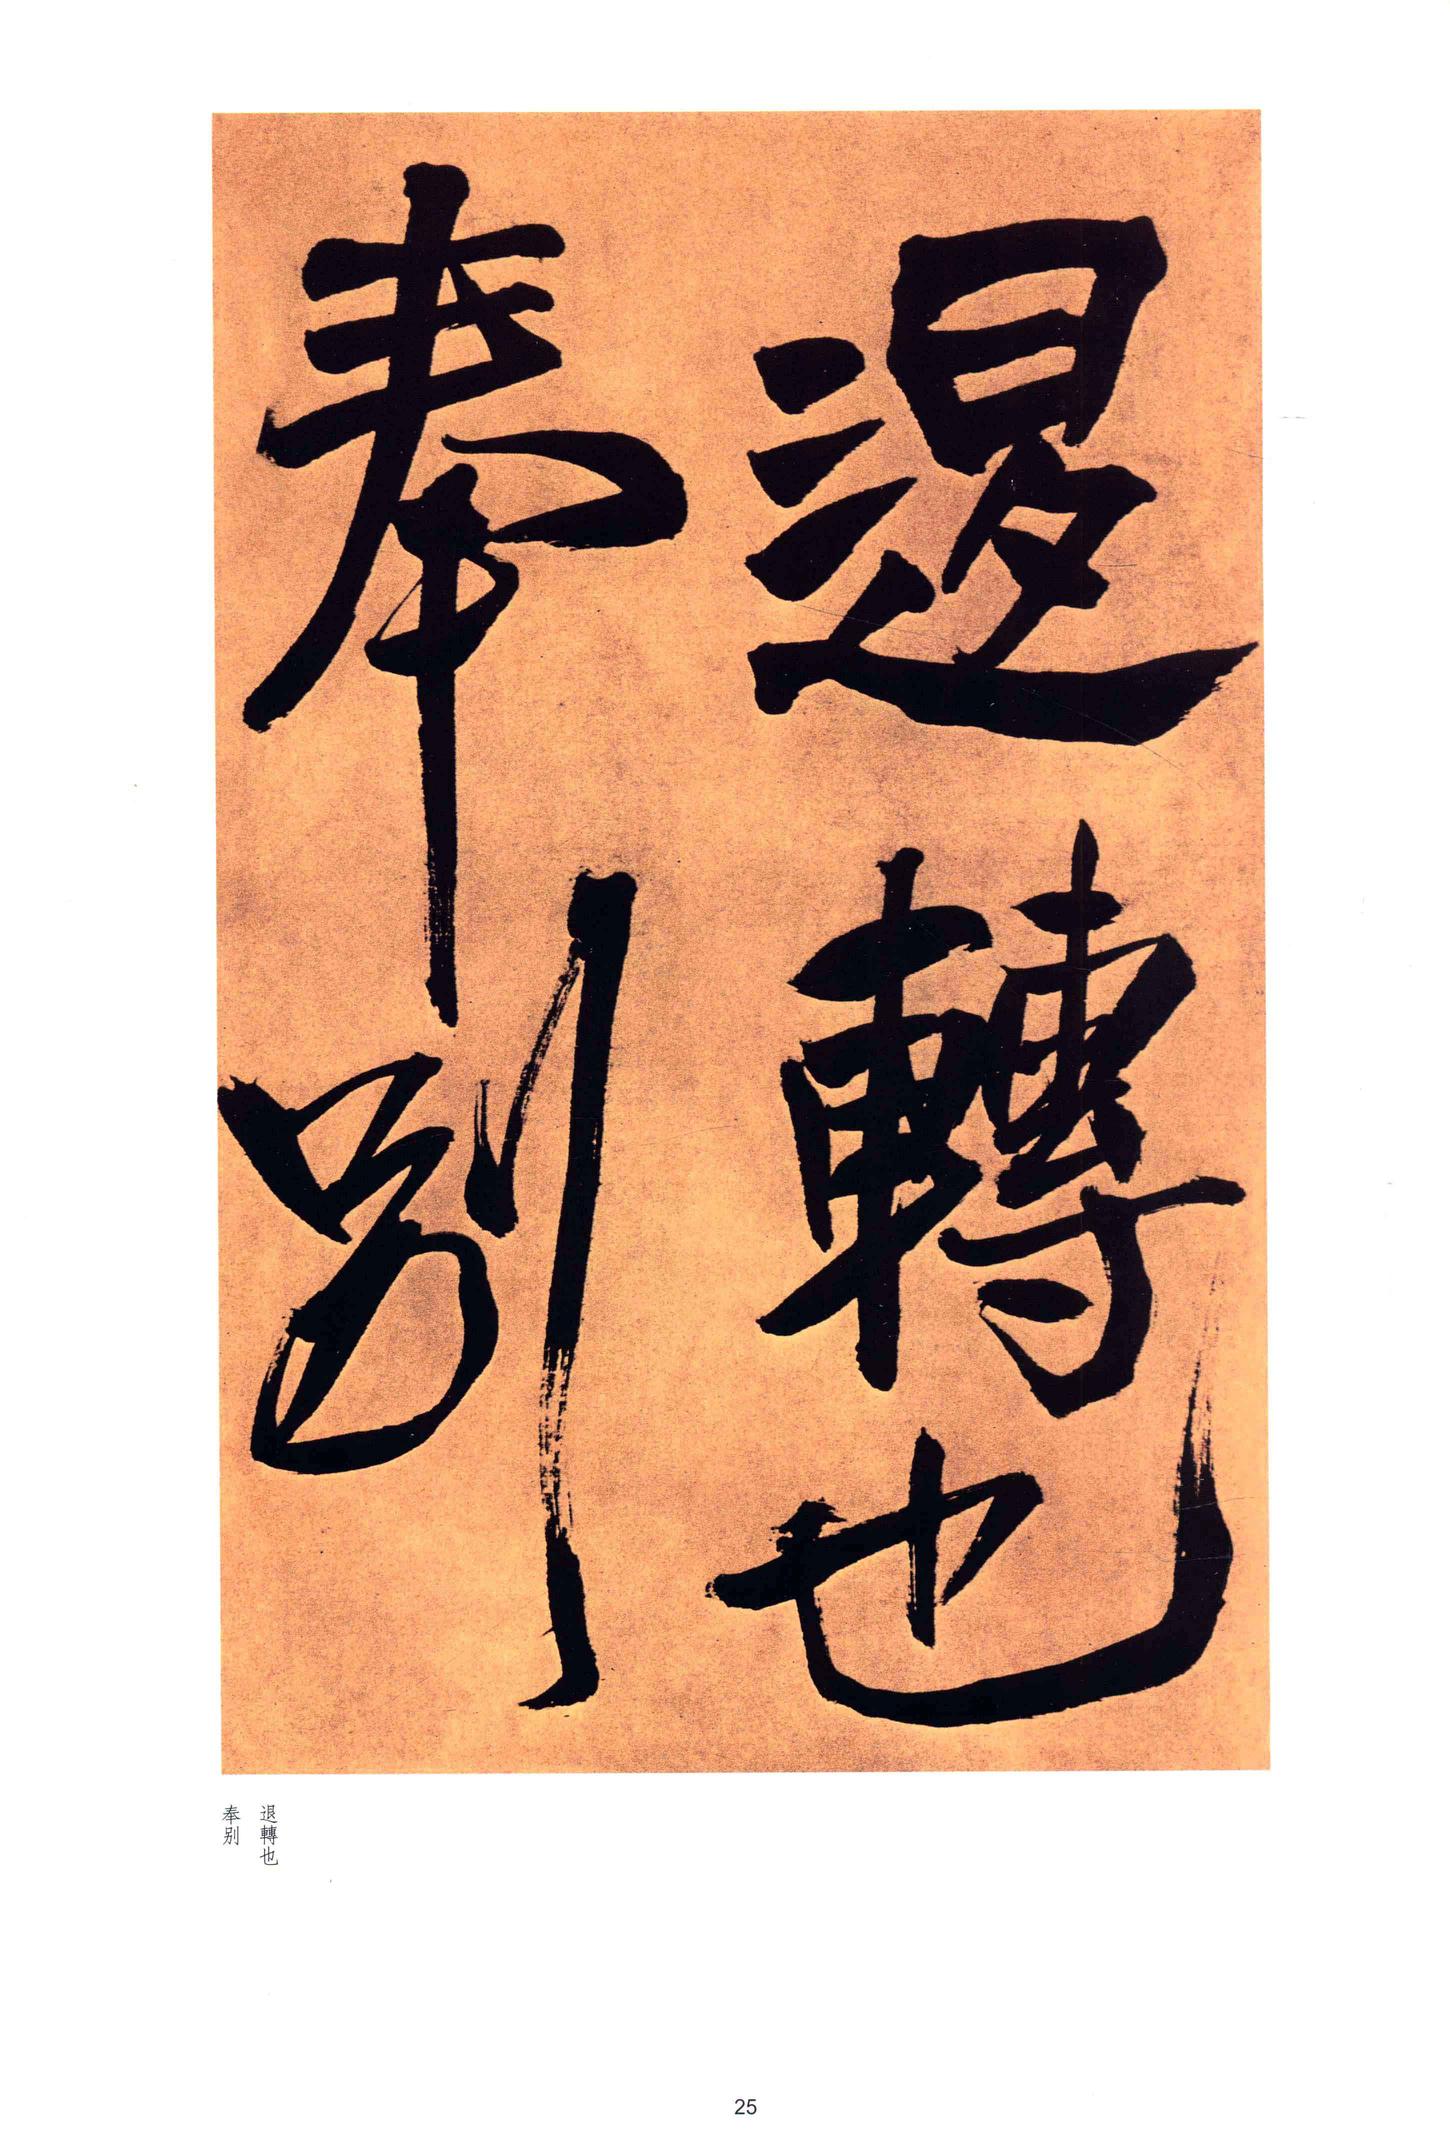 退轉也
奉别
退轉也
奉别
25